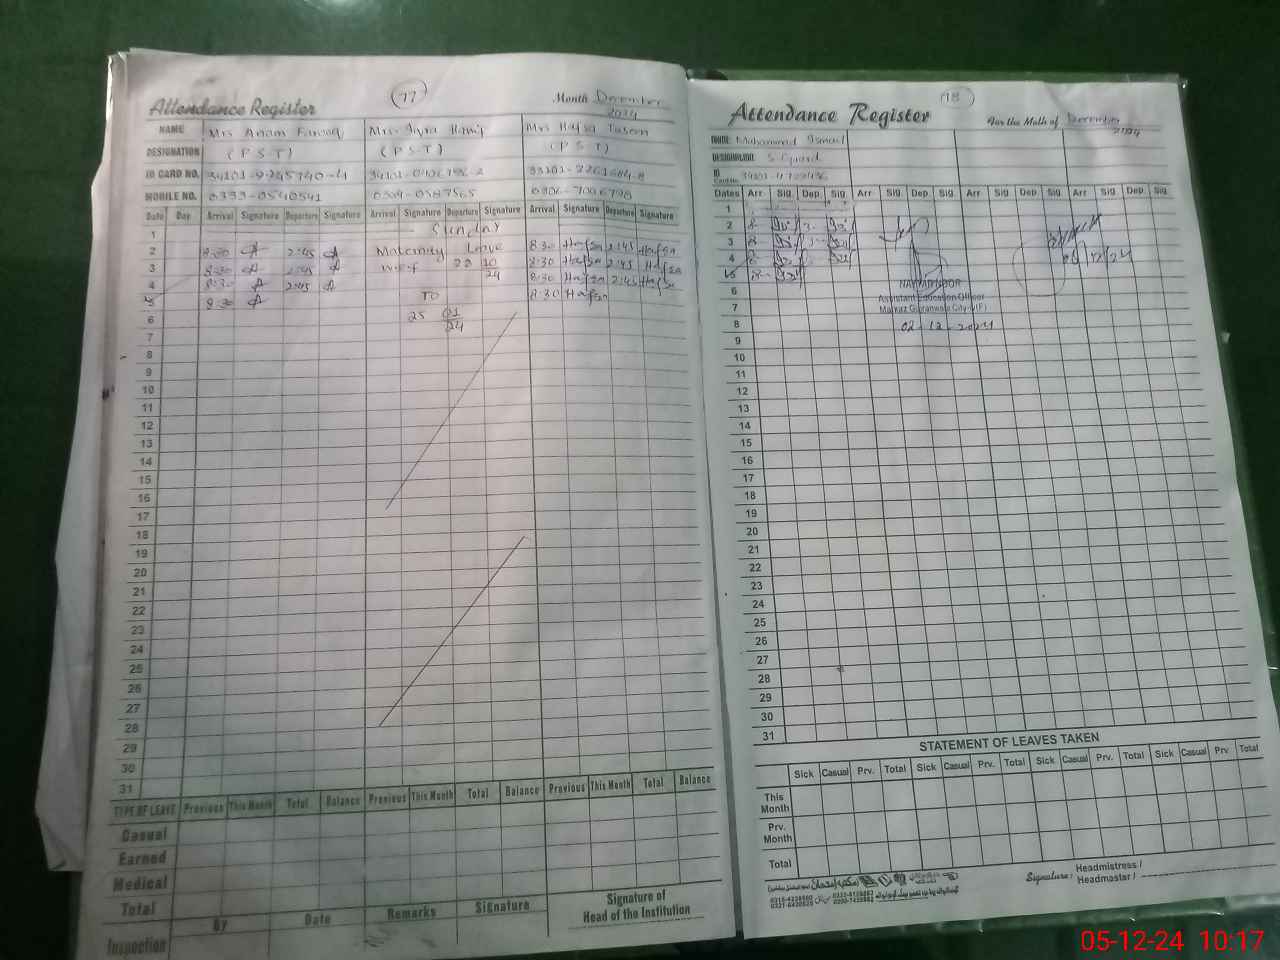 77
Attendance Register
Month December
2024
NAME Mrs Anam Farooq Mrs. Iqra Hanif Mrs Hafsa Taseen
DESIGNATION (P S T) (P S T) (P S T)
ID CARD NO.
MOBILE NO. 0333-0540541 0304-0587565 0306-7006798
Date Day Arrival Signature Departure Signature Arrival Signature Departure Signature Arrival Signature Departure Signature
1 Sunday
2 8:30 2:45 Maternity Leave 8:30 Hafsa 2:45 Hafsa
3 8:30 2:45 w.e.f 22 10 24 8:30 Hafsa 2:45 Hafsa
4 8:30 2:45 8:30 Hafsa 2:45 Hafsa
5 8:30 TO 8:30 Hafsa
6 25 01
7
8
9
10
11
12
13
14
15
16
17
18
19
20
21
22
23
24
25
26
27
28
29
30
31
TYPE OF LEAVE Previous This Month Total Balance Previous This Month Total Balance Previous This Month Total Balance
Casual
Earned
Medical
Total
By Date Remarks Signature Signature of
Head of the Institution
Inspection
78
Attendance Register
For the Moth of December
2024
NAME: Muhammad Ismail
DESIGNATION S. Guard
ID
Card No.
Dates Arr. Sig. Dep. Sig. Arr. Sig. Dep. Sig. Arr. Sig. Dep. Sig. Arr. Sig. Dep. Sig.
1
2
3
4
5
6
7
8
Assistant Education Officer
02-12-2024
9
10
11
12
13
14
15
16
17
18
19
20
21
22
23
24
25
26
27
28
29
30
31
STATEMENT OF LEAVES TAKEN
Sick Casual Prv. Total Sick Casual Prv. Total Sick Casual Prv. Total Sick Casual Prv. Total
This
Month
Prv.
Month
Total
Signature: Headmistress /
Headmaster /
05-12-24 10:17